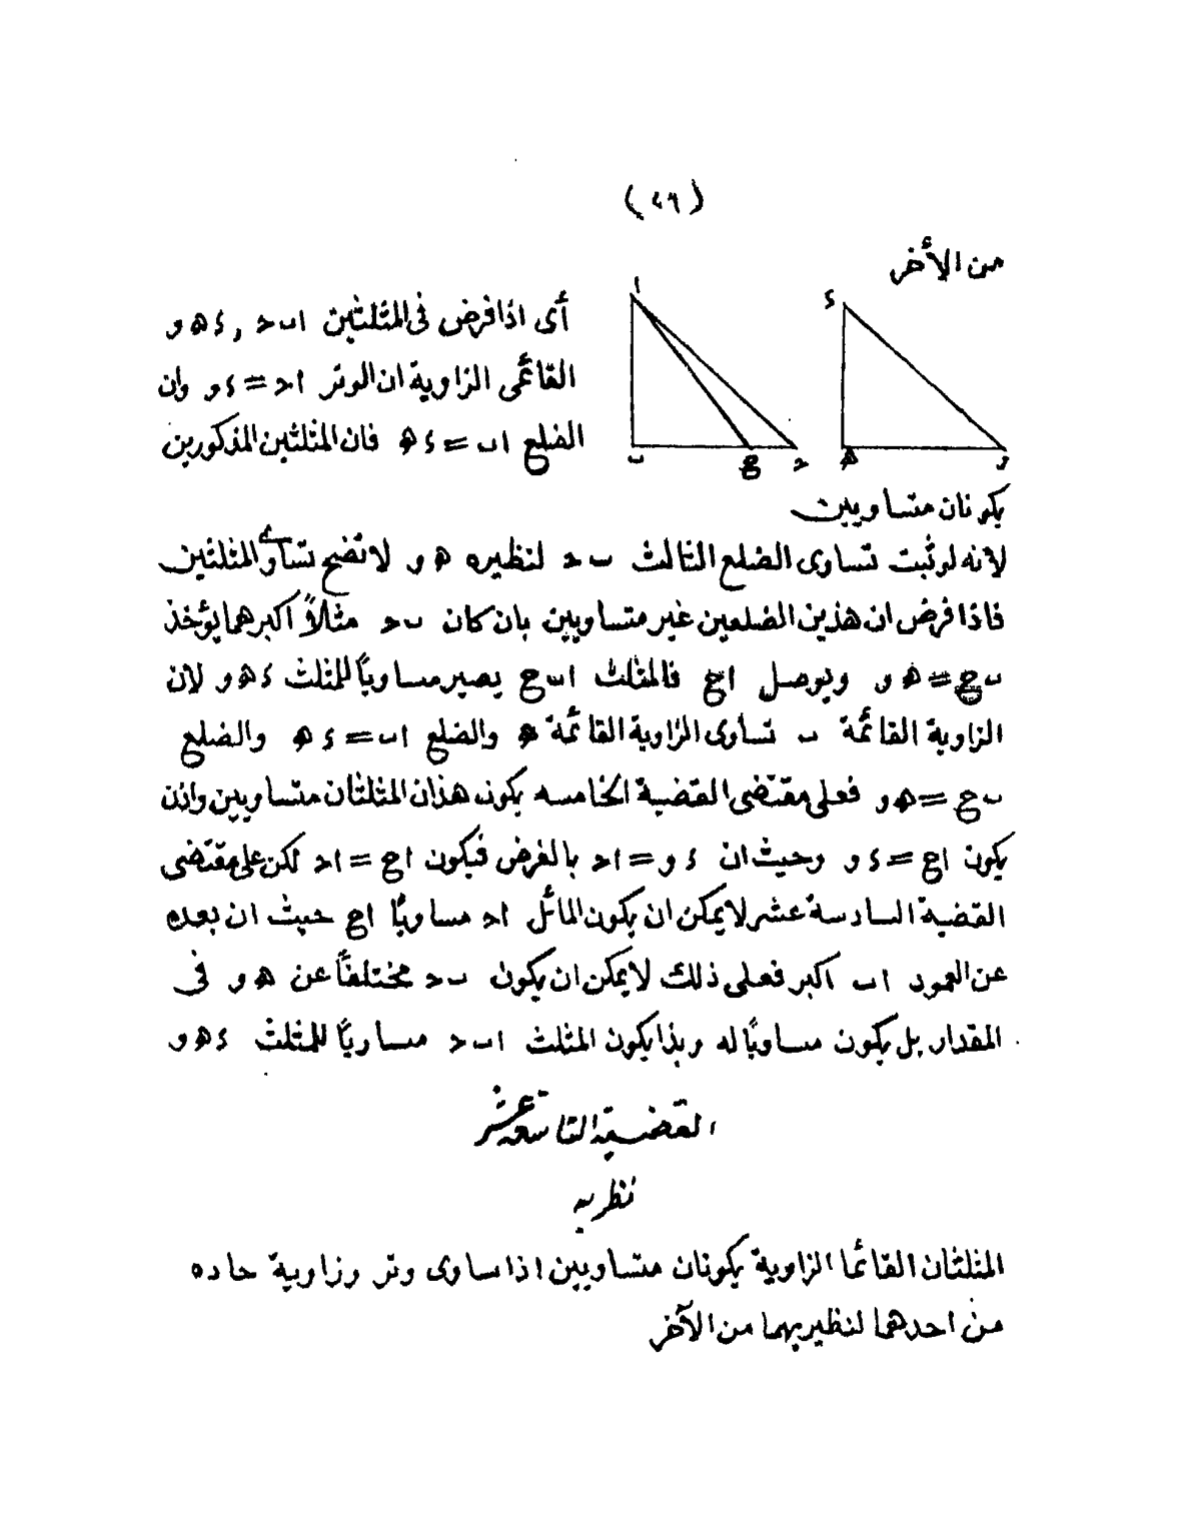 (٤٦)
من الأخر
أى اذا فرض فى المثلثين ا ٮ د , ء ه و
القائمى الزاوية ان الوتر ا د = ء و وان
الضلع ا ٮ = ء ه فان المثلثين المذكورين
ا
ء
ٮ
ج
د
ه
و
يكونان متساويين
لأنه لو ثبت تساوى الضلع الثالث ٮ د لنظيره ه و لا تضح تساوى المثلثين
فاذا فرض ان هذين الضلعين غير متساويين بان كان ٮ د مثلاً اكبرهما يؤخذ
ٮ ج = ه و ويوصل ا ج فالمثلث ا ٮ ج يصير مساويًا للمثلث ء ه و لان
الزاوية القائمة ٮ تساوى الزاوية القائمة ه والضلع ا ٮ = ء ه والضلع
ٮ ج = ه و فعلى مقتضى القضية الخامسه يكون هذان المثلثان متساويين واذن
يكون ا ج = ء و وحيث ان ء و = ا د بالفرض فيكون ا ج = ا د لكن على مقتضى
القضية السادسة عشر لا يمكن ان يكون المائل ا د مساويًا ا ج حيث ان بعده
عن العمود ا ٮ اكبر فعلى ذلك لا يمكن ان يكون ٮ د مختلفاً عن ه و فى
المقدار بل يكون مساويًا له وبذا يكون المثلث ا ٮ د مساويًا للمثلث ء ه و
القضية التاسعة عشر
نظريه
المثلثان القائما الزاوية يكونان متساويين اذا ساوى وتر وزاوية حاده
من احدهما لنظيريهما من الآخر